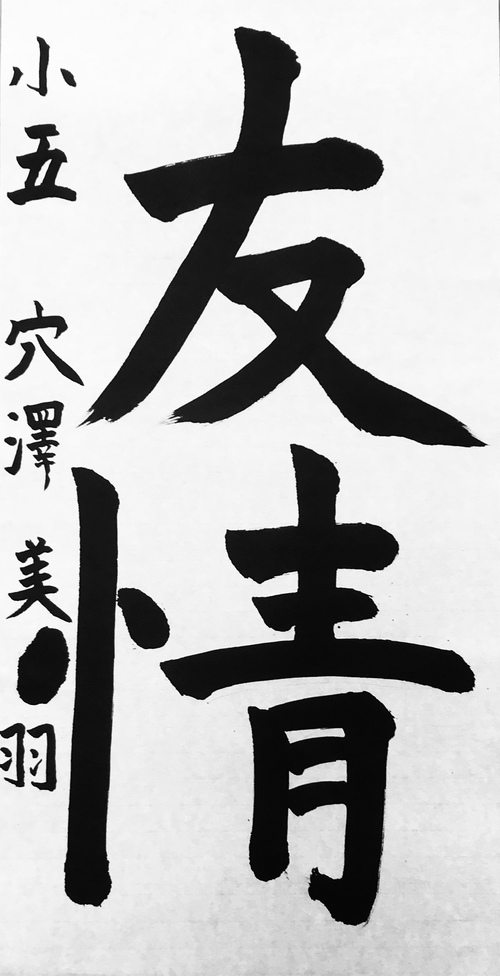 友情
小五 穴澤 美羽